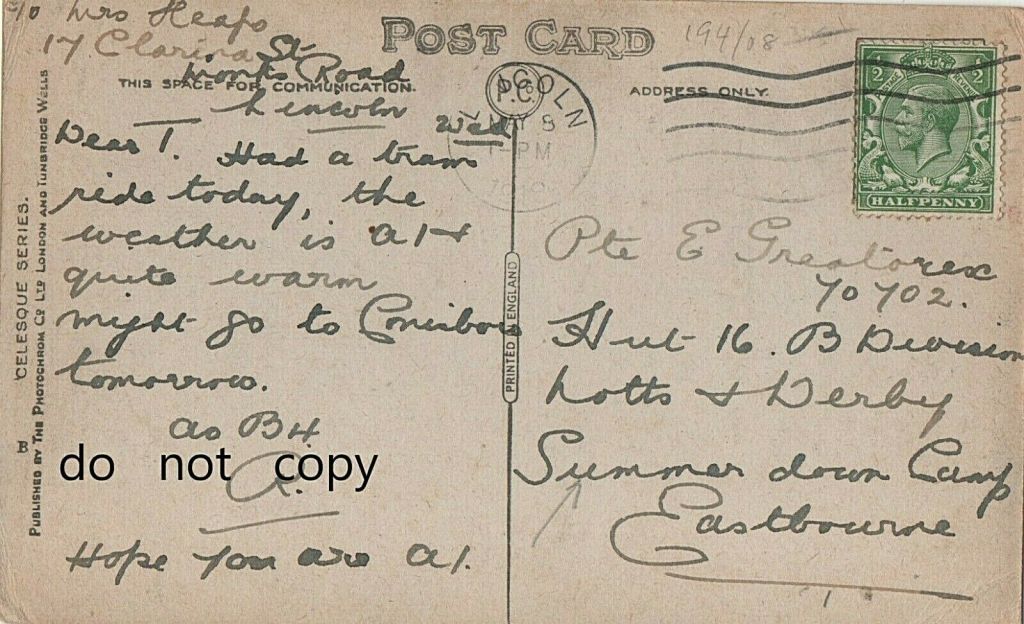 c/o Mrs Heafo
17 Clarina St
Monks Road
Lincoln
POST CARD
194/08
THIS SPACE FOR COMMUNICATION.
ADDRESS ONLY.
P.C.
LINCOLN
MY 8
PM
½ ½
POSTAGE REVENUE
HALFPENNY
Wed
Dear T. Had a tram
ride today, the
weather is A1 &
quite warm
might go to Conisboro
tomorrow.
as B4
do not copy
R.
Hope you are A1.
Pte E Greatorex
70702.
Hut 16. B Division
Notts & Derby
Summer down Camp
Eastbourne
PRINTED IN ENGLAND
"CELESQUE" SERIES.
PUBLISHED BY THE PHOTOCHROM CO LTD LONDON AND TUNBRIDGE WELLS
B